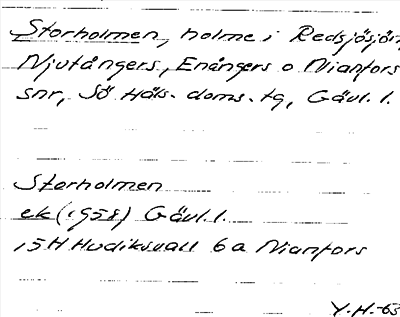 Storholmen, holme i Redsjösjön,
Njutångers, Enångers o Nianfors
snr, Sö Häls. doms. tg, Gävl. l.
Storholmen
ek (1958) Gävl. l.
15H Hudiksvall 6a Nianfors
Y.H.-63